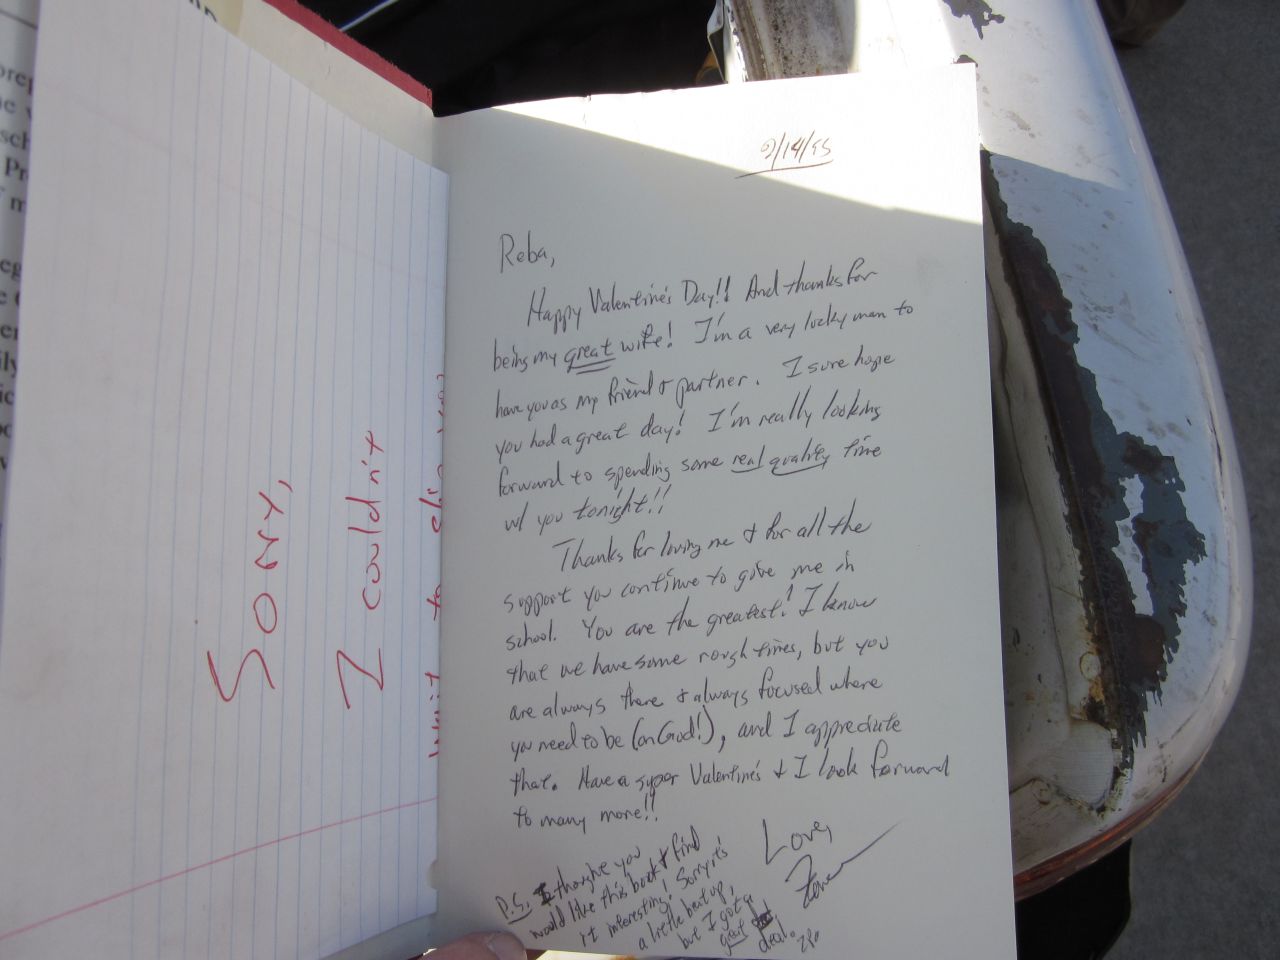 Sorry,
I couldn't
2/14/95
Reba,
Happy Valentine's Day!! And thanks for
being my great wife! I'm a very lucky man to
have you as my friend & partner. I sure hope
you had a great day! I'm really looking
forward to spending some real quality time
w/ you tonight!!
Thanks for loving me & for all the
support you continue to give me in
school. You are the greatest! I know
that we have some rough times, but you
are always there & always focused where
you need to be (on God!), and I appreciate
that. Have a super Valentine's & I look forward
to many more!!
Love,
P.S. I thought you
would like this book & find
it interesting! Sorry it's
a little beat up,
but I got a
great deal.